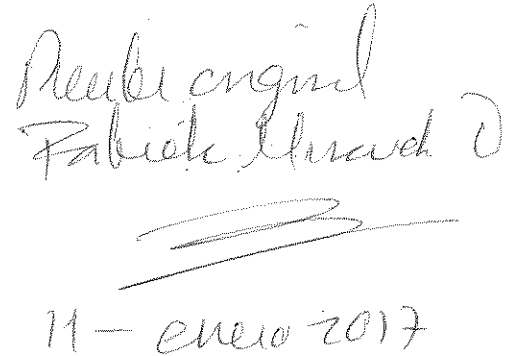 Recibi original
Fabiola D
11 - enero 2017